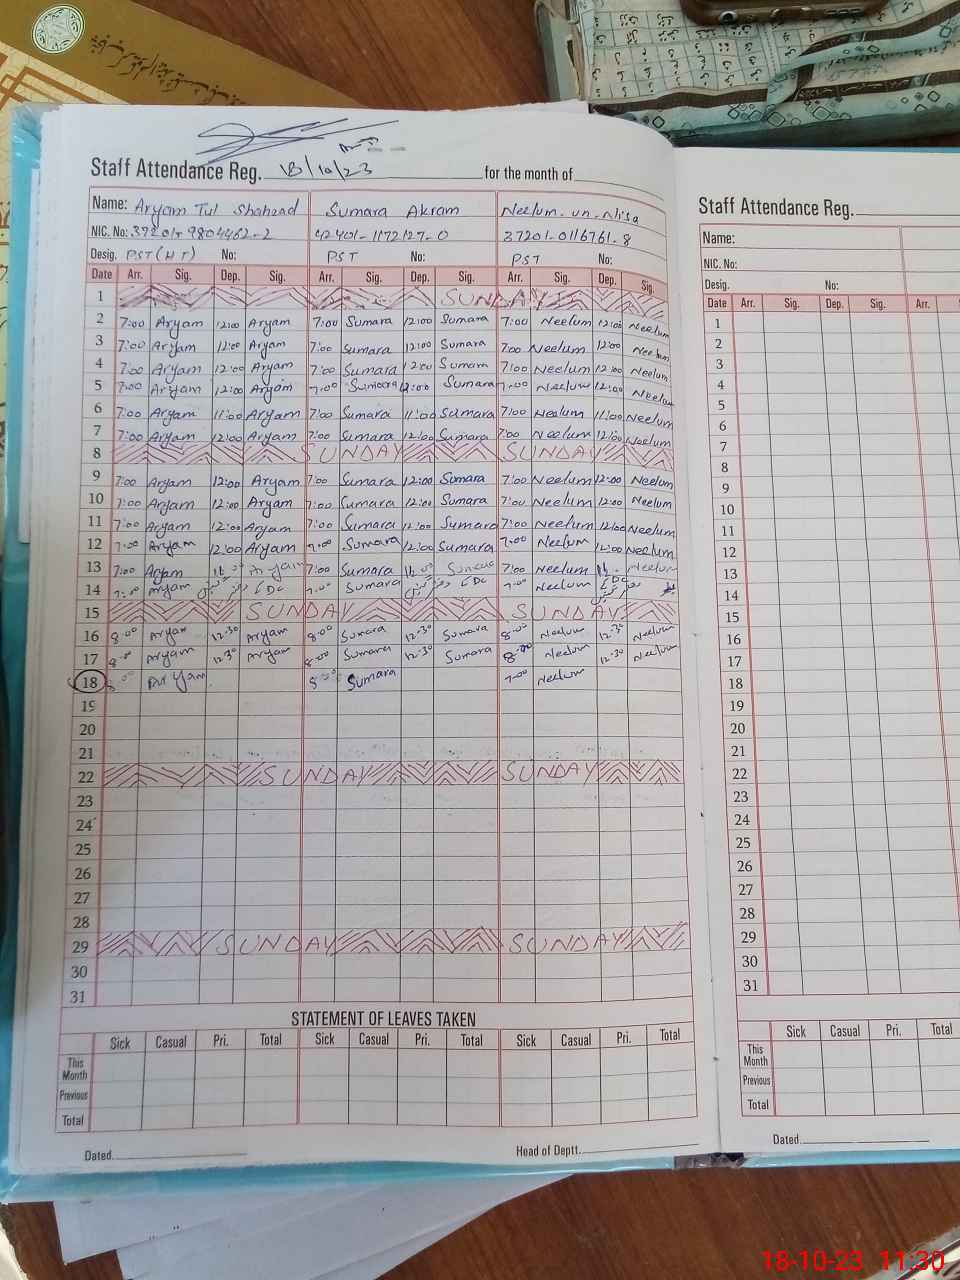 18/10/23
Staff Attendance Reg. for the month of
Name: Aryam Tul Shahzad Sumara Akram Neelum-un-Nisa
NIC. No: 42401-1172127-0 37201-0116761-8
Desig. PST (HT) No: PST No: PST No:
Date Arr. Sig. Dep. Sig. Arr. Sig. Dep. Sig. Arr. Sig. Dep. Sig.
1 SUNDAY
2 7:00 Aryam 12:00 Aryam 7:00 Sumara 12:00 Sumara 7:00 Neelum 12:00 Neelum
3 7:00 Aryam 12:00 Aryam 7:00 Sumara 12:00 Sumara 7:00 Neelum 12:00 Neelum
4 7:00 Aryam 12:00 Aryam 7:00 Sumara 12:00 Sumara 7:00 Neelum 12:00 Neelum
5 7:00 Aryam 12:00 Aryam 7:00 Sumara 12:00 Sumara 7:00 Neelum 12:00 Neelum
6 7:00 Aryam 11:00 Aryam 7:00 Sumara 11:00 Sumara 7:00 Neelum 11:00 Neelum
7 7:00 Aryam 12:00 Aryam 7:00 Sumara 12:00 Sumara 7:00 Neelum 12:00 Neelum
8 SUNDAY SUNDAY
9 7:00 Aryam 12:00 Aryam 7:00 Sumara 12:00 Sumara 7:00 Neelum 12:00 Neelum
10 7:00 Aryam 12:00 Aryam 7:00 Sumara 12:00 Sumara 7:00 Neelum 12:00 Neelum
11 7:00 Aryam 12:00 Aryam 7:00 Sumara 12:00 Sumara 7:00 Neelum 12:00 Neelum
12 7:00 Aryam 12:00 Aryam 7:00 Sumara 12:00 Sumara 7:00 Neelum 12:00 Neelum
13 7:00 Aryam Aryam 7:00 Sumara Sumara 7:00 Neelum Neelum
14 7:00 Aryam 7:00 Sumara 7:00 Neelum
15 SUNDAY SUNDAY
16 8:00 Aryam 12:30 Aryam 8:00 Sumara 12:30 Sumara 8:00 Neelum 12:30 Neelum
17 8:00 Aryam 12:30 Aryam 8:00 Sumara 12:30 Sumara 8:00 Neelum 12:30 Neelum
18 8:00 Aryam 8:00 Sumara 7:00 Neelum
19
20
21
22 SUNDAY SUNDAY
23
24
25
26
27
28
29 SUNDAY SUNDAY
30
31
STATEMENT OF LEAVES TAKEN
Sick Casual Pri. Total Sick Casual Pri. Total Sick Casual Pri. Total
This Month
Previous
Total
Dated. Head of Deptt.
Staff Attendance Reg.
Name:
NIC. No:
Desig. No:
Date Arr. Sig. Dep. Sig. Arr.
1
2
3
4
5
6
7
8
9
10
11
12
13
14
15
16
17
18
19
20
21
22
23
24
25
26
27
28
29
30
31
Sick Casual Pri. Total Sick
This Month
Previous
Total
Dated.
18-10-23 11:30